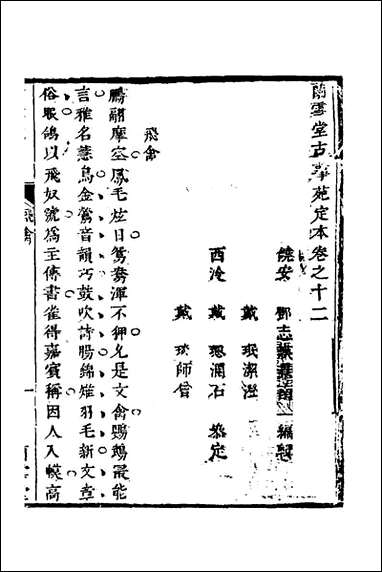 蘭雪堂古事苑定本卷之十二
饒安 鄧志謨 編
戴 珉潔澄
西泠 戴 潤石 叅定
戴 琰師信
飛禽
鵬翮摩空鳳毛炫日鴛鴦渾不狎兄是文禽鸚鵡最能
言雅名慧鳥金鶯音韻巧鼓吹詩腸錦雉羽毛新文章
俗眼鴿以飛奴號爲主傳書雀得嘉賓稱因人入幙高
飛禽
一